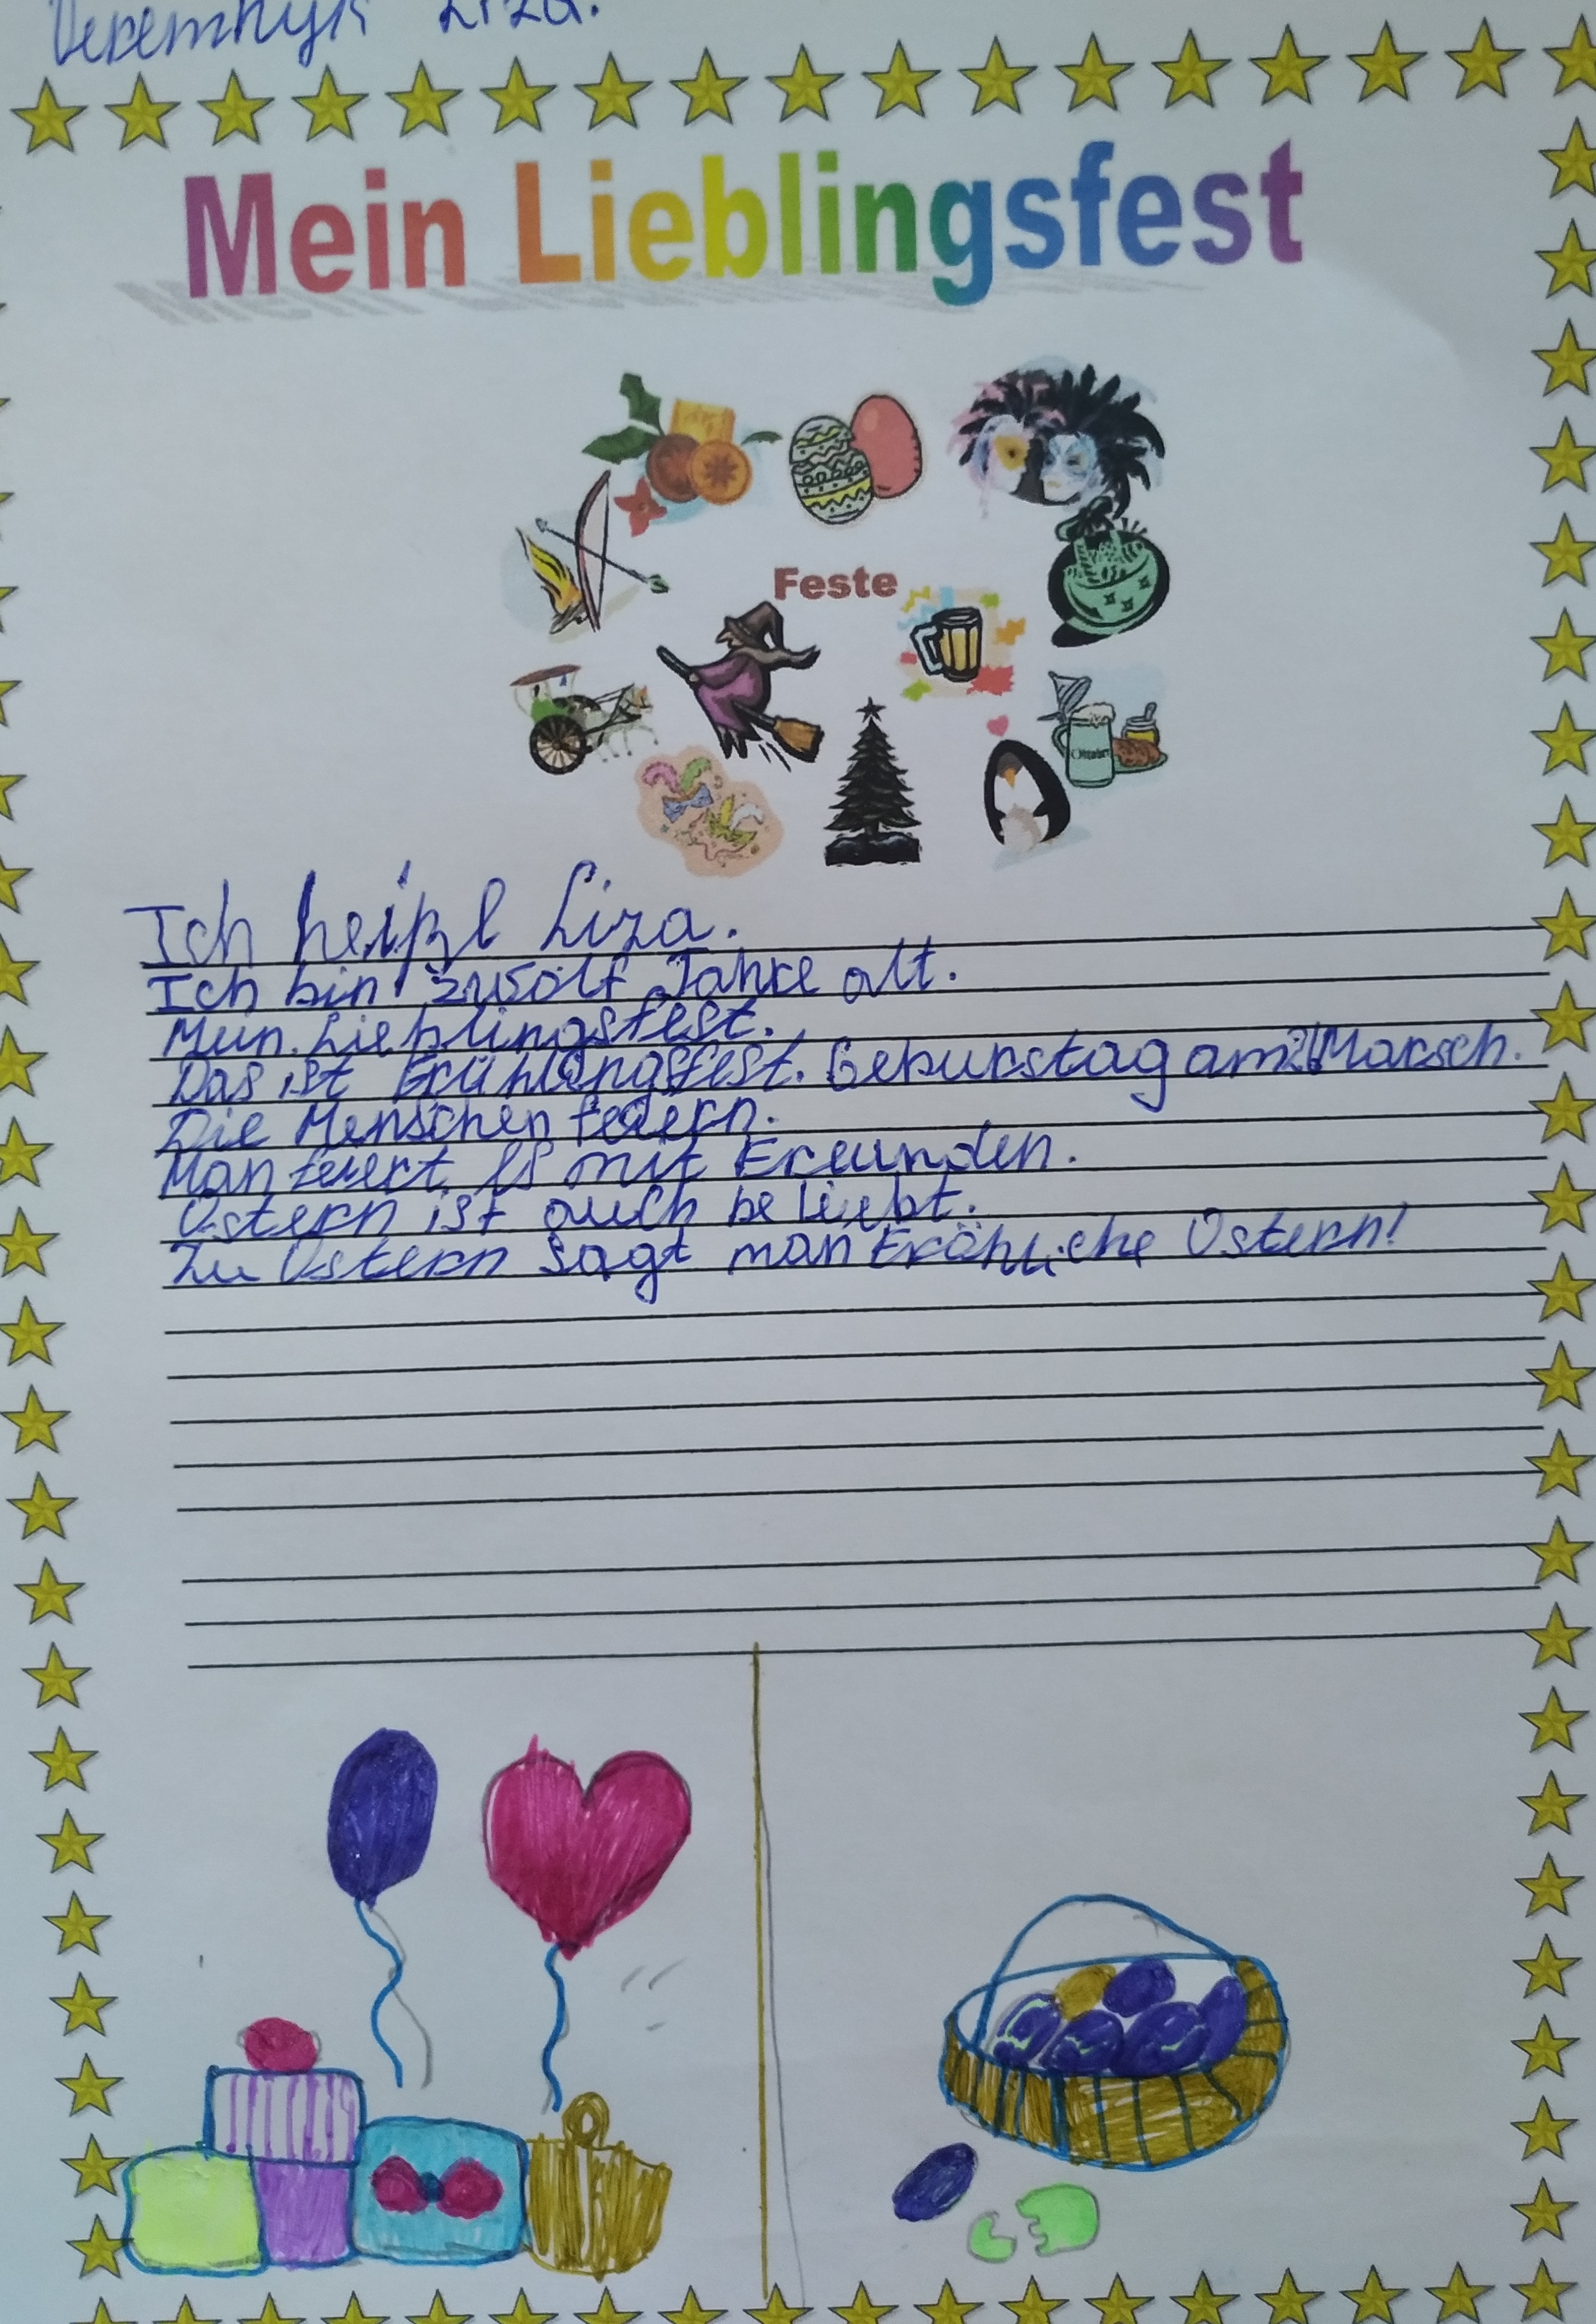 Liza.
Mein Lieblingsfest
Feste
Oktober
Ich heiße Liza.
Ich bin zwölf Jahre alt.
Mein Lieblingsfest.
Das ist Frühlingsfest. Geburstag am 26 Marsch.
Die Menschen feiern.
Man feiert es mit Freunden.
Ostern ist auch beliebt.
Zu Ostern sagt man Fröhliche Ostern!